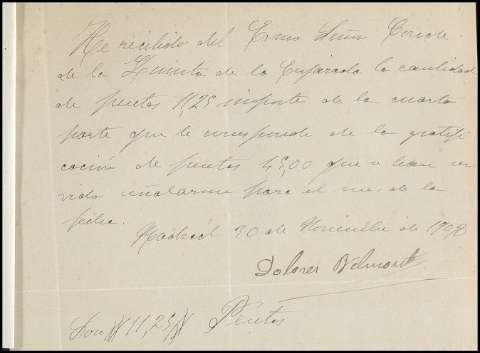 He recibido del Exmo Señor Conde
de la Quinta de la Enjarada la cantidad
de pesetas 11,25 importe de la cuarta
parte que le corresponde de la gratifi
cación de pesetas 45,00 que se ha
vido señalarme para el mes de la
fecha.
Madrid 30 de Noviembre de 1908
Dolores Belmonte
Son 11,25 Pesetas